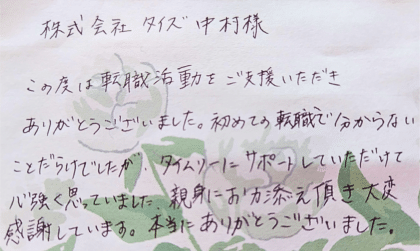 株式会社タイズ 中村様
この度は転職活動をご支援いただき
ありがとうございました。初めての転職で分からない
ことだらけでしたが、タイムリーにサポートしていただけて
心強く思っていました。親身にお力添え頂き大変
感謝しています。本当にありがとうございました。